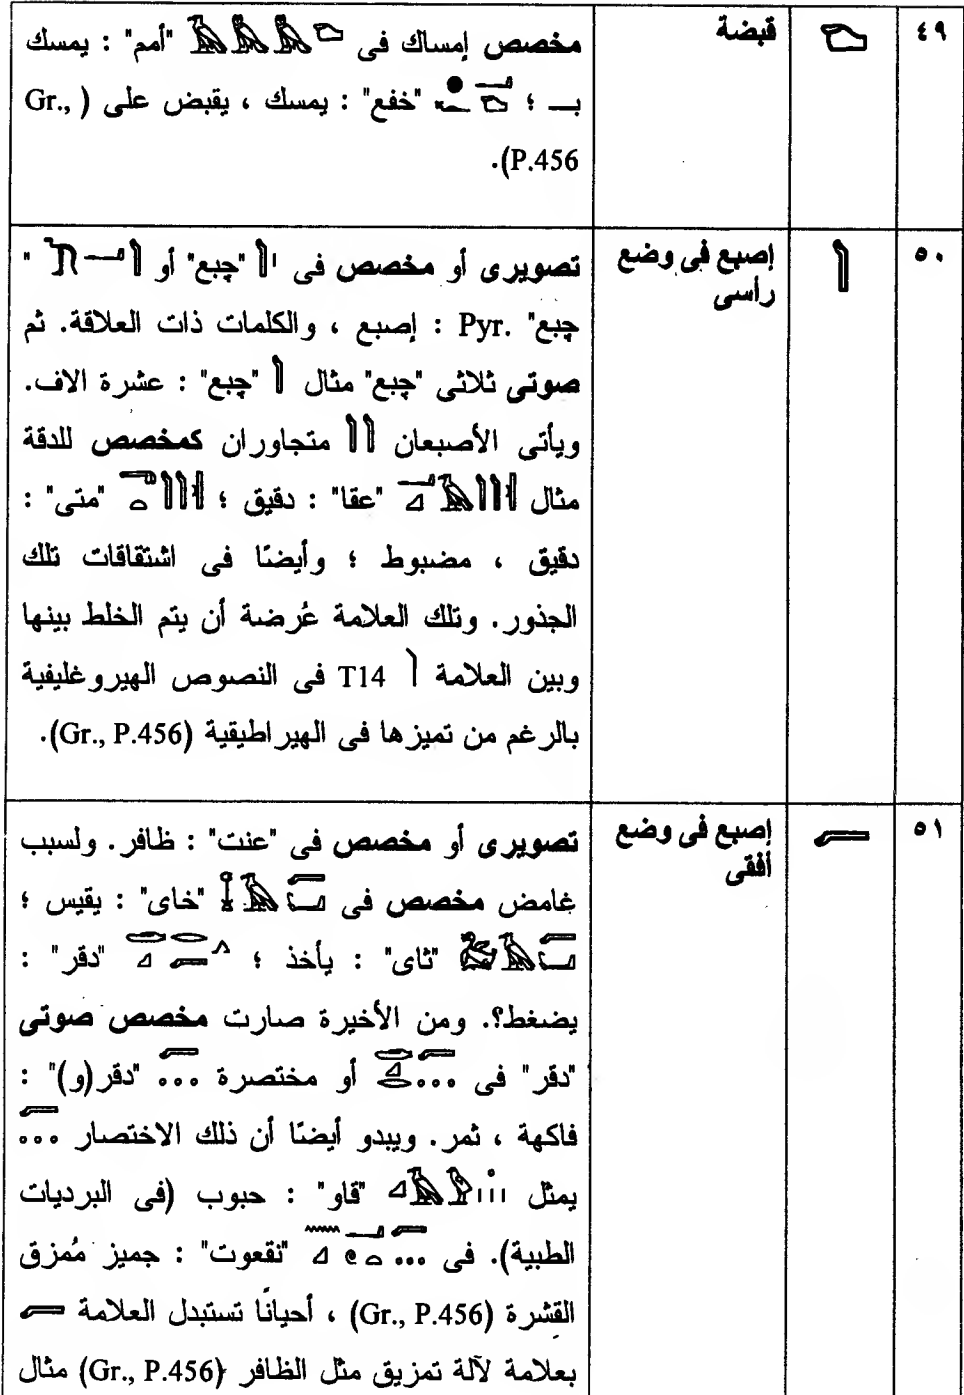 ٤٩ قبضة مخصص إمساك فى "أمم" : يمسك
بـ ؛ "خفع" : يمسك ، يقبض على ( Gr.,
P.456).
٥٠ إصبع فى وضع رأسى
تصويرى أو مخصص فى "چبع" أو "
چبع" Pyr. : إصبع ، والكلمات ذات العلاقة. ثم
صوتى ثلاثى "چبع" مثال "چبع" : عشرة الاف.
ويأتى الأصبعان متجاوران كمخصص للدقة
مثال "عقا" : دقيق ؛ "متى" :
دقيق ، مضبوط ؛ وأيضًا فى اشتقاقات تلك
الجذور. وتلك العلامة عُرضة أن يتم الخلط بينها
وبين العلامة T14 فى النصوص الهيروغليفية
بالرغم من تميزها فى الهيراطيقية (Gr., P.456).
٥١ إصبع فى وضع أفقى
تصويرى أو مخصص فى "عنت" : ظافر. ولسبب
غامض مخصص فى "خاى" : يقيس ؛
"ثاى" : يأخذ ؛ "دقر" :
يضغط؟. ومن الأخيرة صارت مخصص صوتى
"دقر" فى أو مختصرة "دقر(و)" :
فاكهة ، ثمر. ويبدو أيضًا أن ذلك الاختصار
يمثل "قاو" : حبوب (فى البرديات
الطبية). فى "نقعوت" : جميز مُمزق
القشرة (Gr., P.456) ، أحيانًا تستبدل العلامة
بعلامة لآلة تمزيق مثل الظافر (Gr., P.456) مثال